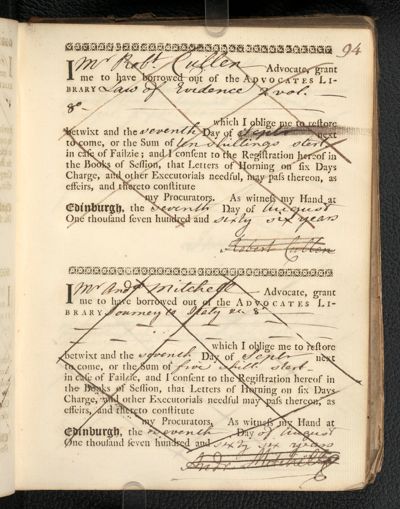 94
I Mr Robt Cullen Advocate, grant
me to have borrowed out of the ADVOCATES LI-
BRARY Law of Evidence 1 vol.
8o
which I oblige me to restore
betwixt and the seventh Day of Septr next
to come, or the Sum of ten shillings sterl
in case of Failzie; and I consent to the Registration hereof in
the Books of Session, that Letters of Horning on six Days
Charge, and other Executorials needful, may pass thereon, as
effeirs, and thereto constitute
my Procurators. As witness my Hand at
Edinburgh, the seventh Day of August
One thousand seven hundred and sixty six years
Robert Cullen
I Mr Andw Mitchell Advocate, grant
me to have borrowed out of the ADVOCATES LI-
BRARY Journey to Italy 8o
which I oblige me to restore
betwixt and the seventh Day of Septr next
to come, or the Sum of five shill: sterl
in case of Failzie, and I consent to the Registration hereof in
the Books of Session, that Letters of Horning on six Days
Charge, and other Executorials needful may pass thereon, as
effeirs, and thereto constitute
my Procurators, As witness my Hand at
Edinburgh, the seventh Day of August
One thousand seven hundred and sixty six years
Andw Mitchell